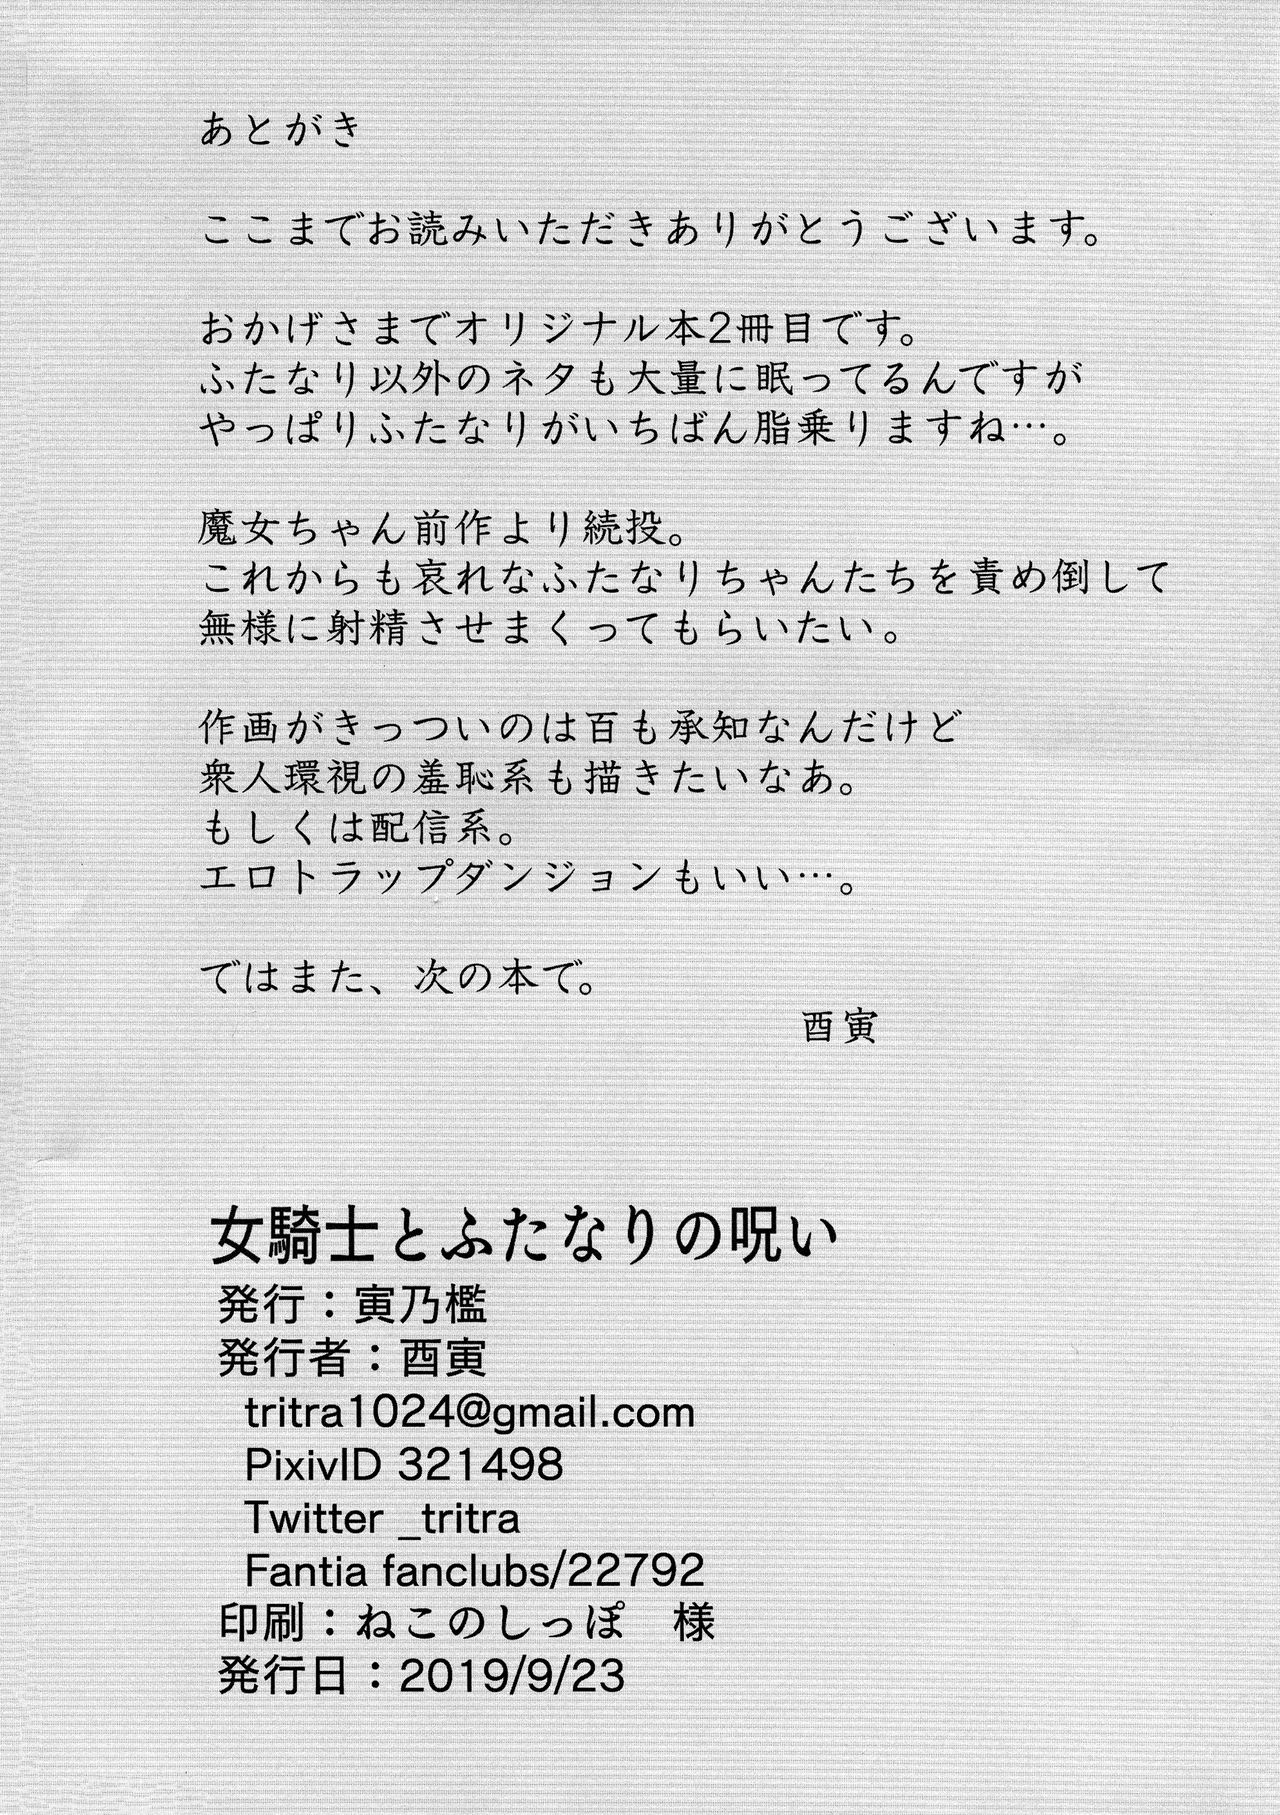 あとがき
ここまでお読みいただきありがとうございます。
おかげさまでオリジナル本2冊目です。
ふたなり以外のネタも大量に眠ってるんですが
やっぱりふたなりがいちばん脂乗りますね…。
魔女ちゃん前作より続投。
これからも哀れなふたなりちゃんたちを責め倒して
無様に射精させまくってもらいたい。
作画がきっついのは百も承知なんだけど
衆人環視の羞恥系も描きたいなあ。
もしくは配信系。
エロトラップダンジョンもいい…。
ではまた、次の本で。
酉寅
女騎士とふたなりの呪い
発行：寅乃檻
発行者：酉寅
tritra1024@gmail.com
PixivID 321498
Twitter _tritra
Fantia fanclubs/22792
印刷：ねこのしっぽ　様
発行日：2019/9/23